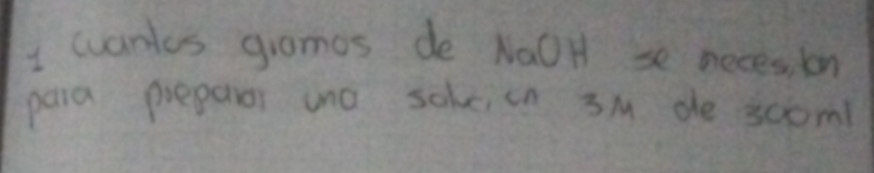 1 cuantos gramos de NaOH se necesitan
para preparar una solucion 3M de 300ml